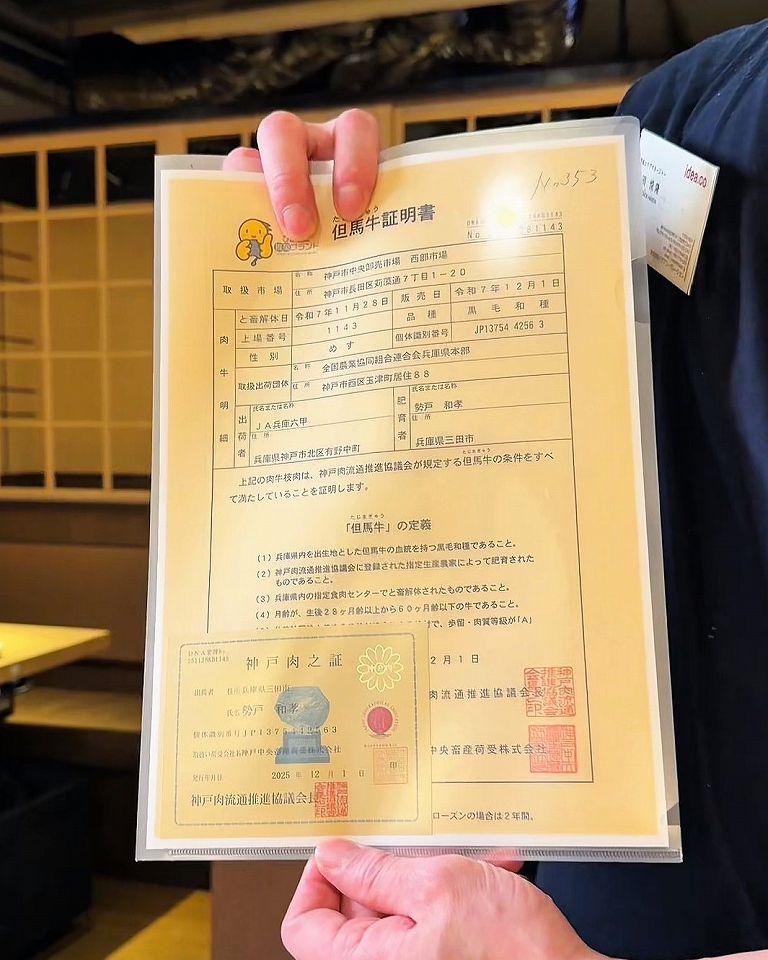 No353
たじまぎゅう
但馬牛証明書
idea.co
取扱市場
名称 神戸市中央卸売市場 西部市場
住所 神戸市長田区苅藻通7丁目1-20
肉牛明細
と畜解体日 令和7年11月28日 販売日 令和7年12月1日
上場番号 1143 品種 黒毛和種
性別 めす 個体識別番号 JP13754 4256 3
取扱出荷団体 名称 全国農業協同組合連合会兵庫県本部
住所 神戸市西区玉津町居住88
出荷者 氏名または名称 JA兵庫六甲
住所 兵庫県神戸市北区有野中町
肥育者 氏名または名称 勢戸 和孝
兵庫県三田市
上記の肉牛枝肉は、神戸肉流通推進協議会が規定する但馬牛の条件をすべ
て満たしていることを証明します。
たじまぎゅう
「但馬牛」の定義
(1)兵庫県内を出生地とした但馬牛の血統を持つ黒毛和種であること。
(2)神戸肉流通推進協議会に登録された指定生産農家によって肥育された
ものであること。
(3)兵庫県内の指定食肉センターでと畜解体されたものであること。
(4)月齢が、生後28ヶ月齢以上から60ヶ月齢以下の牛であること。
歩留・肉質等級が「A」
2月1日
肉流通推進協議会長
中央畜産荷受株式会社
ローズンの場合は2年間。
DNA管理No.
神戸肉之証
出荷者 住所 兵庫県三田市
氏名 勢戸 和孝
個体識別番号 JP1375442563
取扱い荷受会社名 神戸中央畜産荷受株式会社
発行年月日 2025年12月1日
神戸肉流通推進協議会長